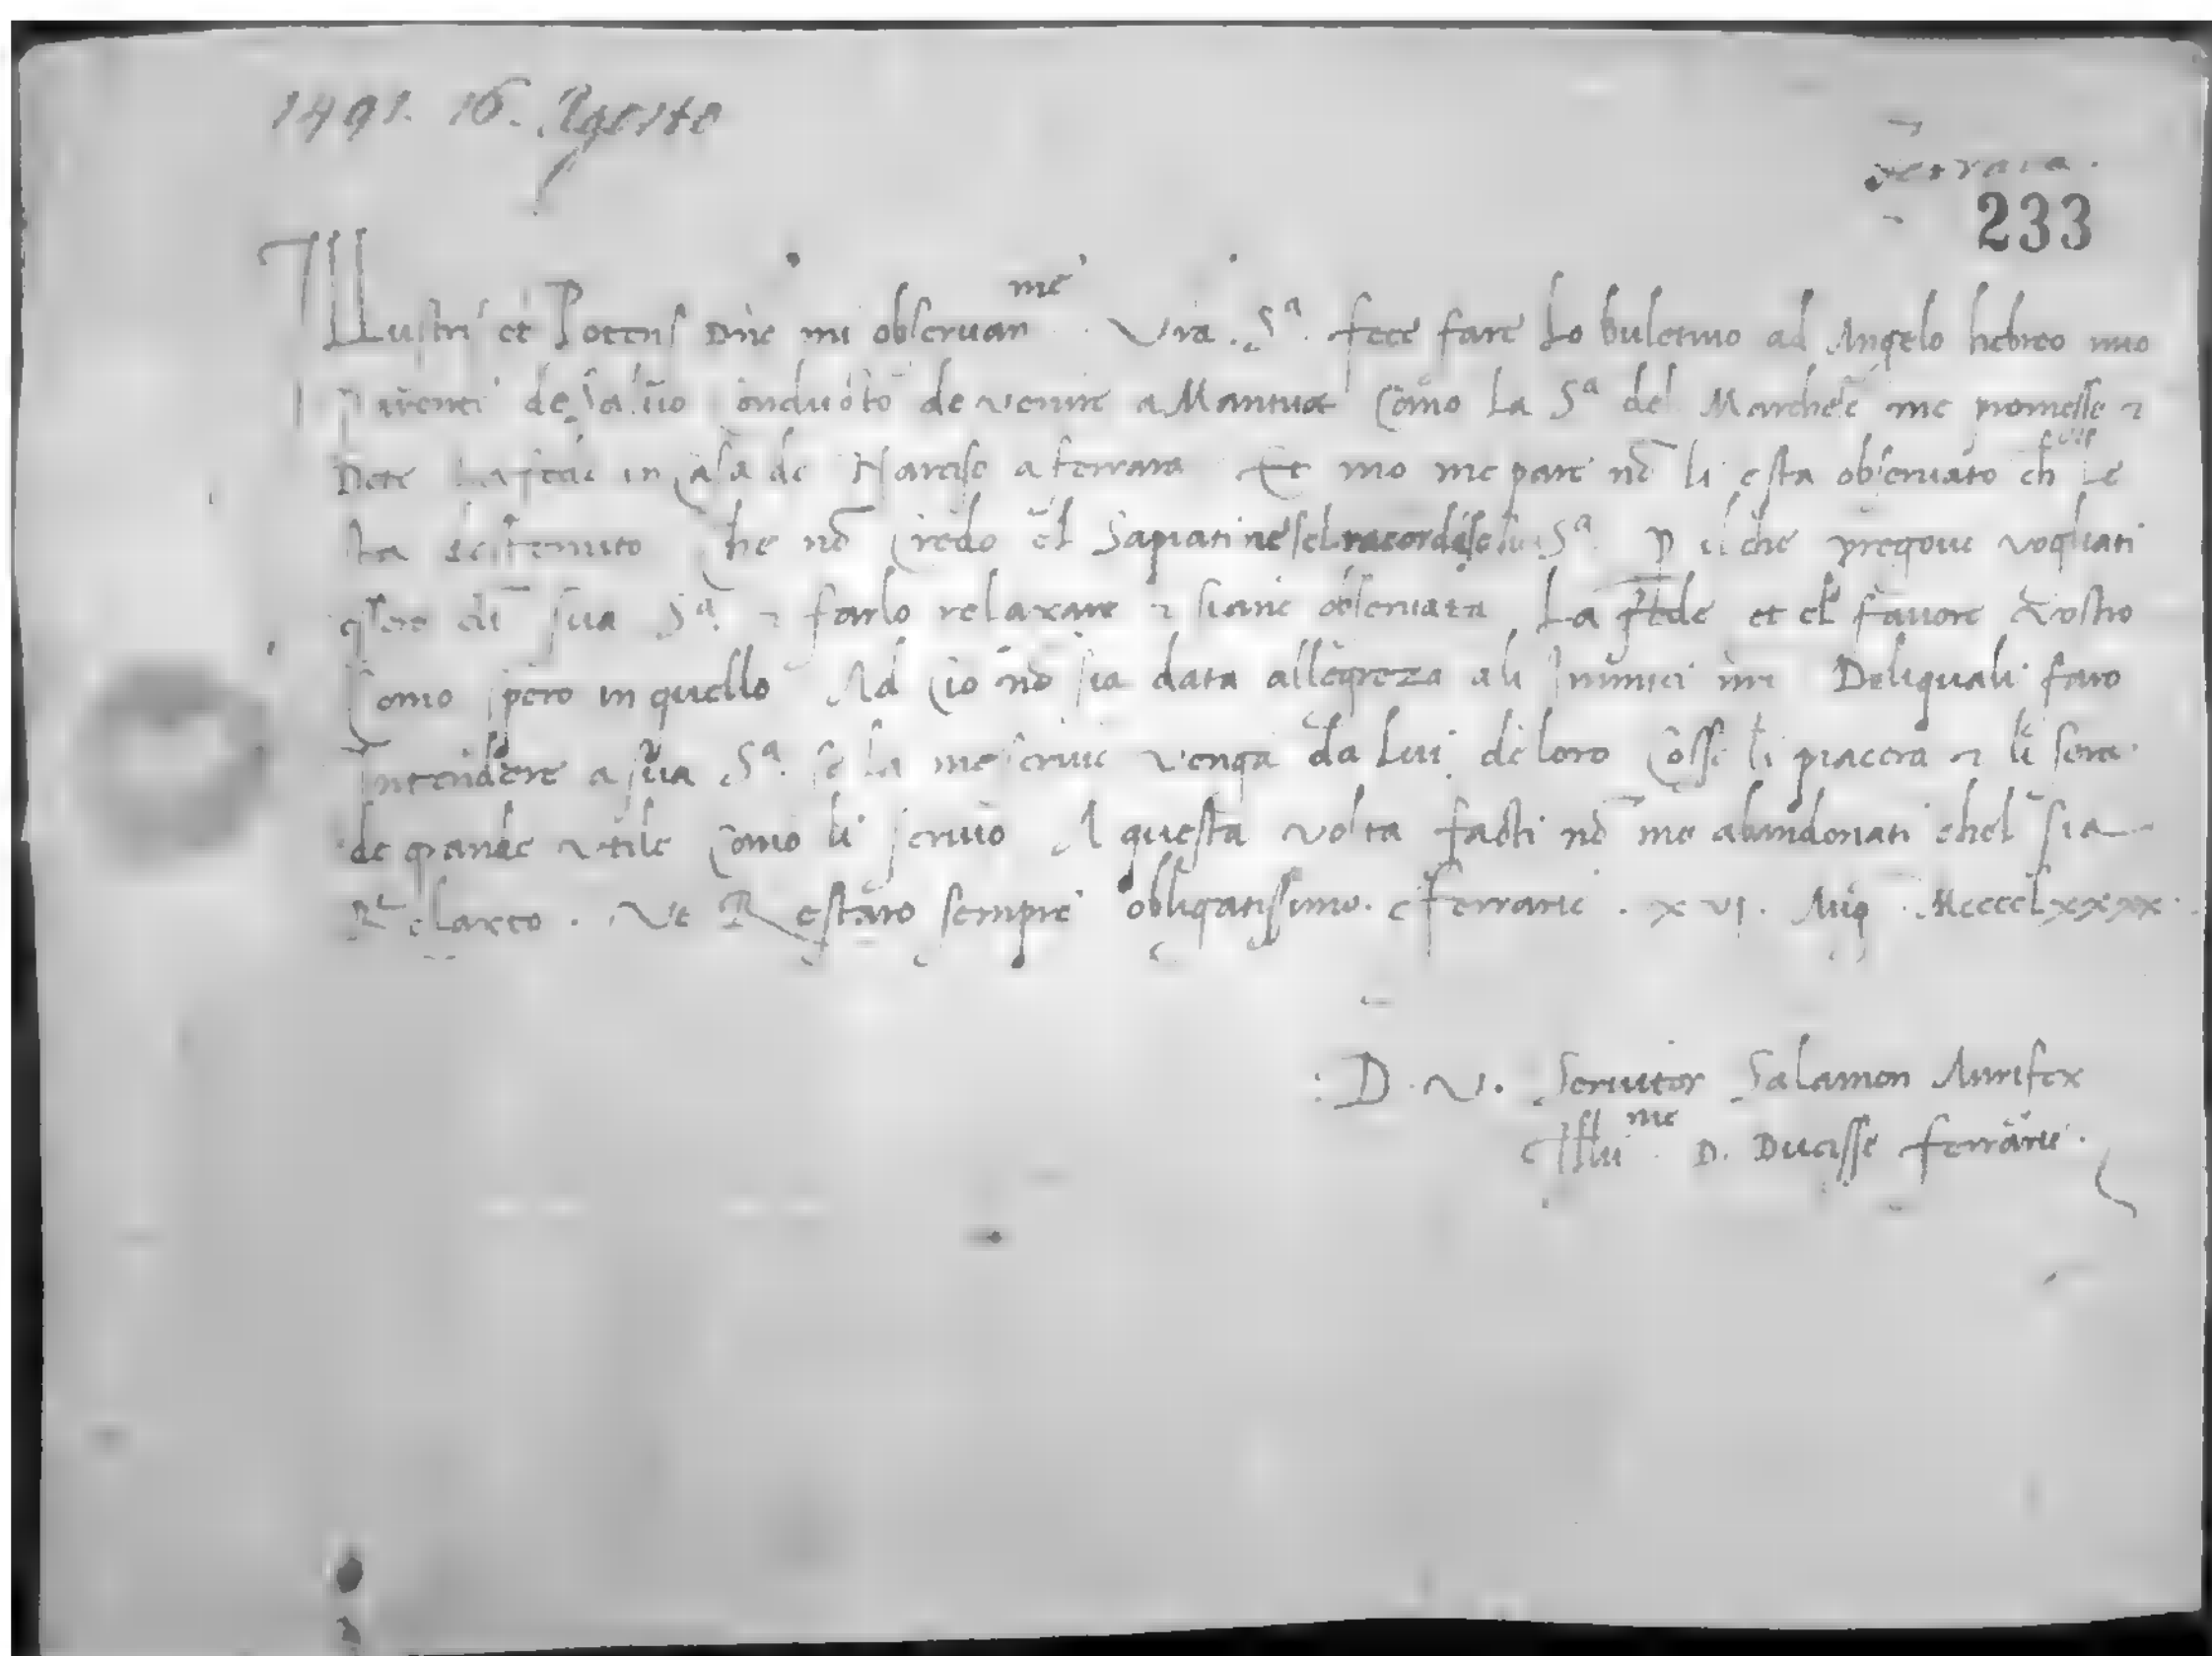 1491. 16. Agosto
Ferrara.
233
Illustris et Potens Dñe mi observan me. Vra. Sa. fece fare lo buletino ad Angelo hebreo mio
Parente de salvo conducto de venire a Mantua Como la Sa del Marchese me promesse et
Dete la fede in casa de Narciso a ferrara Et mo me pare nõ li esta observato ch le
sta destenuto Che nõ credo el Sapiati ne sel racordi Sa. P il che pregove vogliati
essere cũ sua Sa. et farlo relaxare et siane observata La fede et el favore Vostro
Como spero in quello Ad cio nõ sia data allegreza ali Inimici mei Deliquali faro
Intendere a sua Sa. se la me scrive venga da Lui de loro Cosse li piacera et li sera
de grande utile Como li scrivo A questa volta facti nõ me abandonati chel sia
Relaxto. Ve Restaro sempre obligatissimo. Ferrarie. xvi. Aug. Mcccclxxxx
D. V. Servitor Salamon Aurifex
Illui me. D. Ducisse ferrarie.